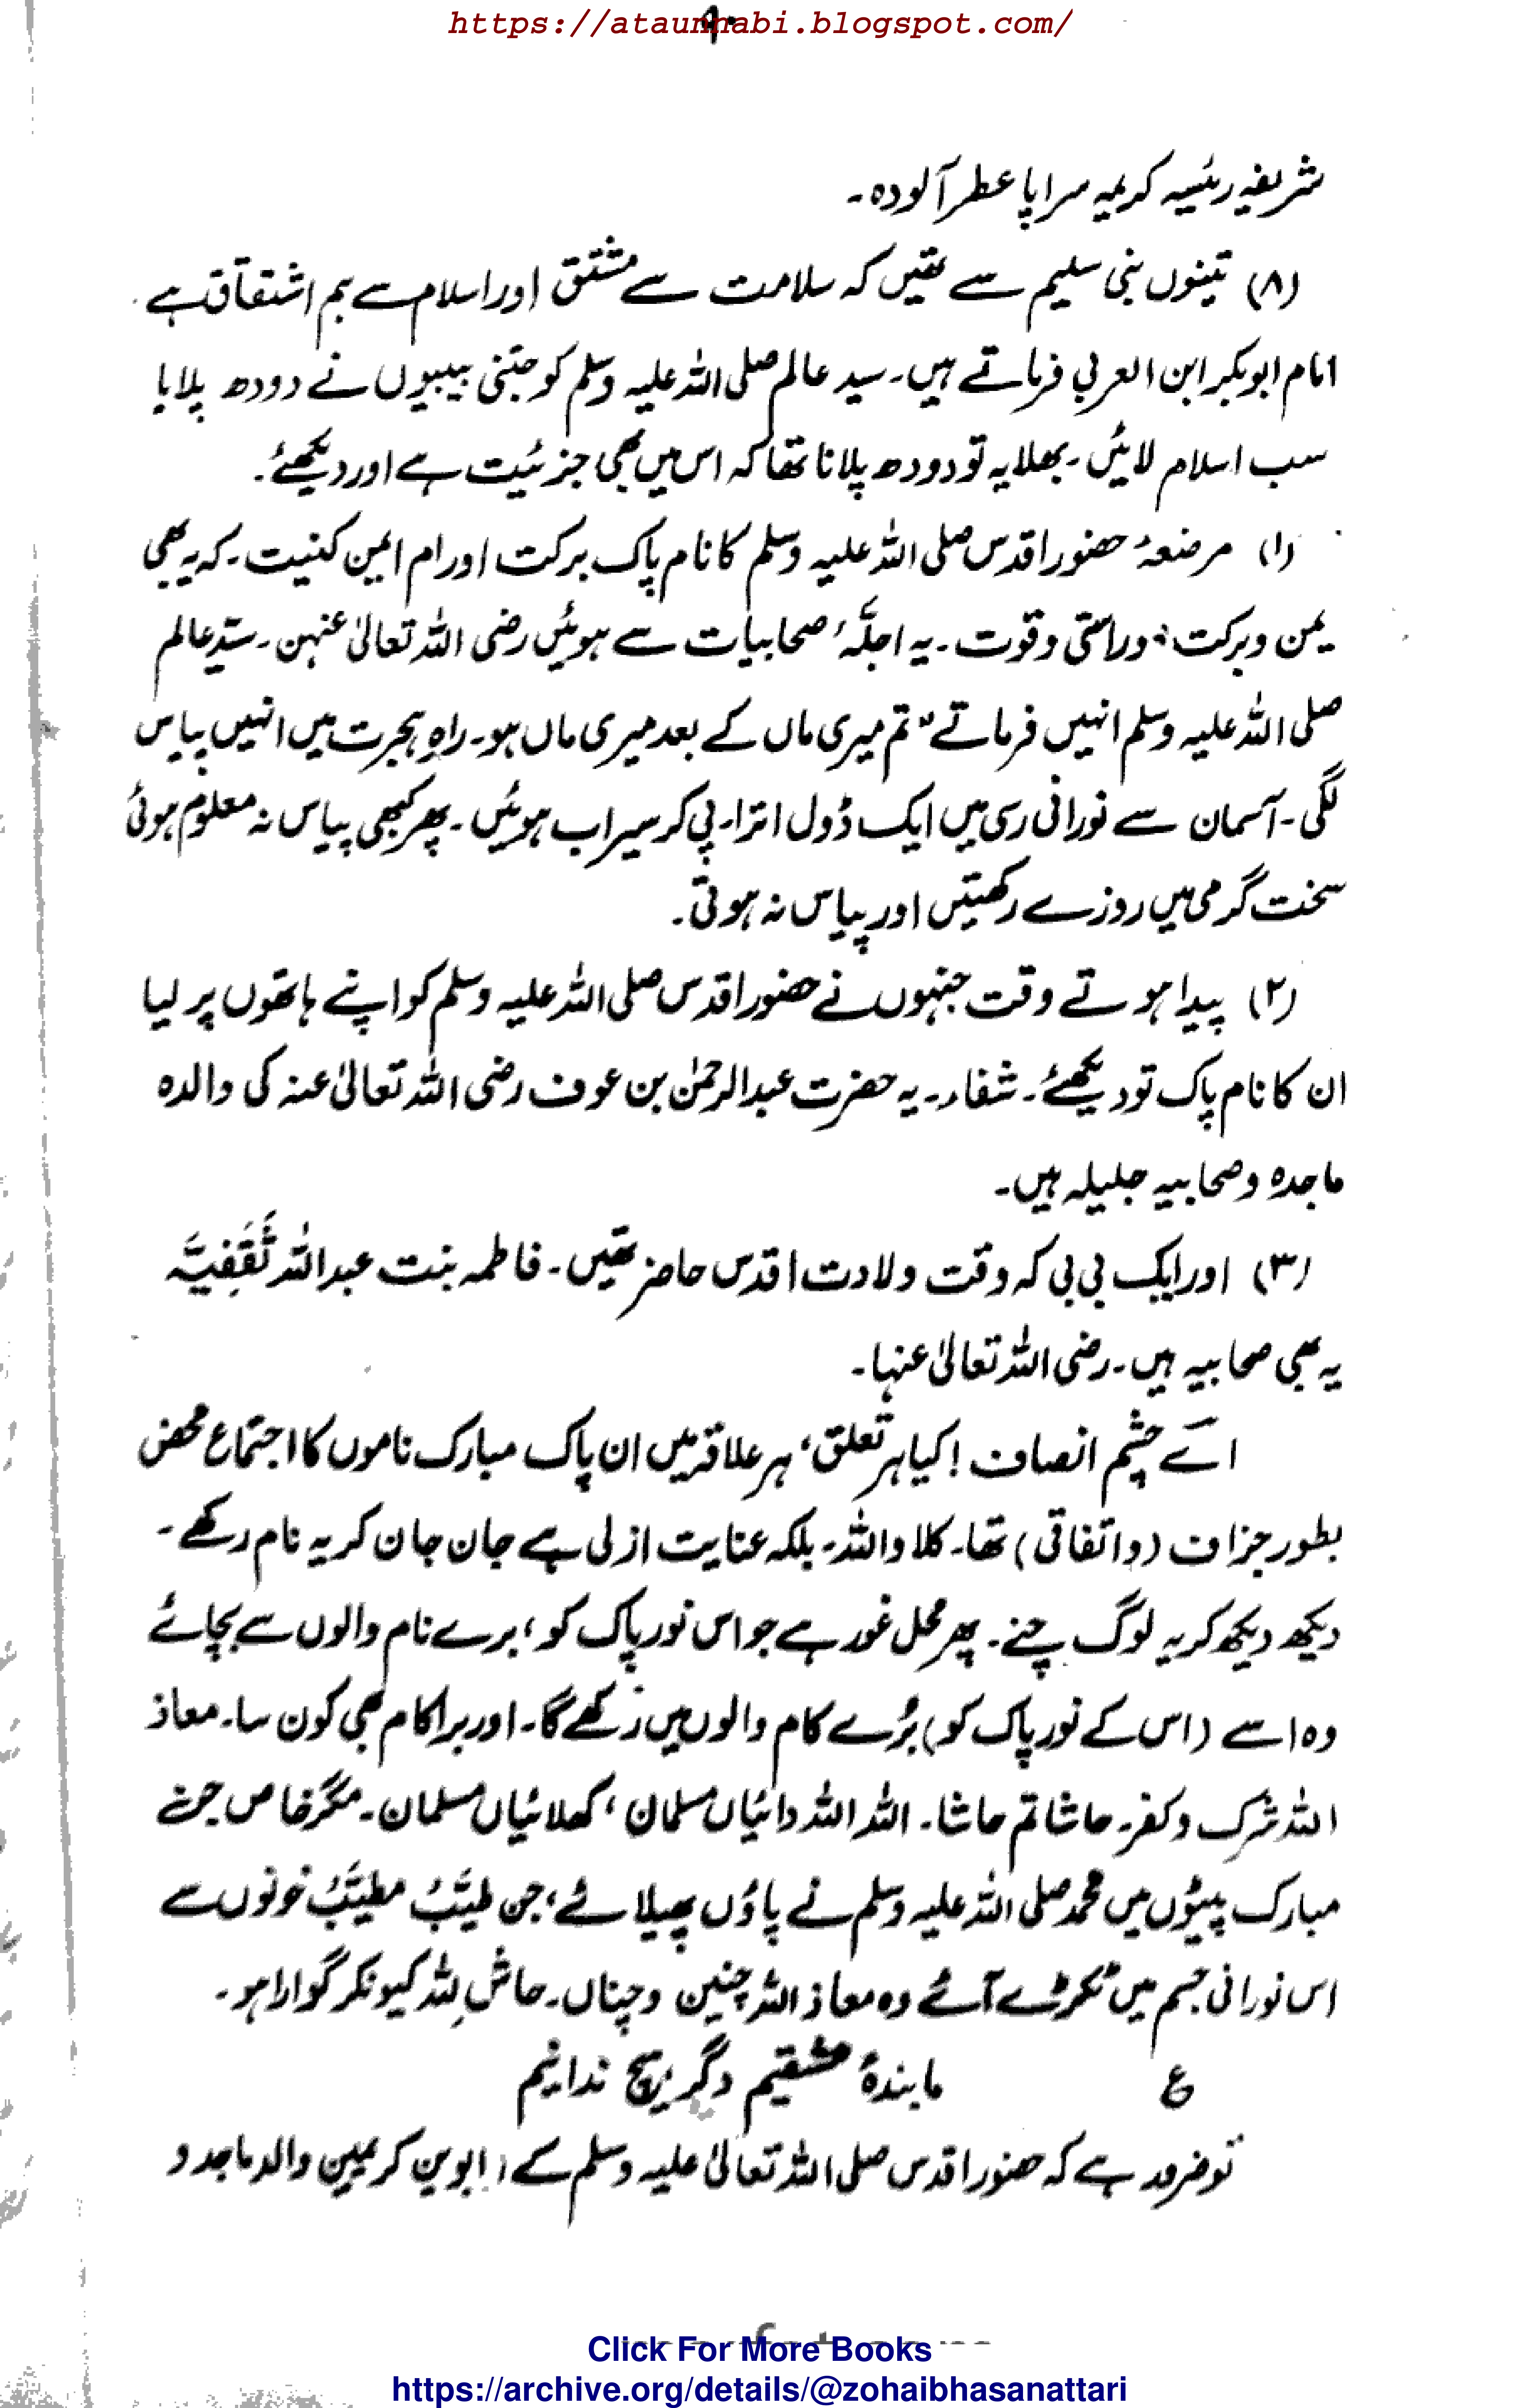 https://ataunnabi.blogspot.com/
شریفہ رئیسہ کریمہ سراپا عطر آلودہ۔
(۸) تینوں بنی سلیم سے تھیں کہ سلامت سے مشتق اور اسلام سے ہم اشتقاق ہے۔
امام ابوبکر ابن العربی فرماتے ہیں۔ سید عالم صلی اللہ علیہ وسلم کو جتنی بیبیوں نے دودھ پلایا
سب اسلام لائیں۔ بھلا یہ تو دودھ پلانا تھا کہ اس میں بھی جزئیت ہے اور دیکھئے۔
(۱) مرضعۂ حضور اقدس صلی اللہ علیہ وسلم کا نام پاک برکت اور ام ایمن کنیت۔ کہ یہ بھی
یمن وبرکت، وراستی وقوت۔ یہ اجلّۂ صحابیات سے ہوئیں رضی اللہ تعالیٰ عنہن۔ سیّدِ عالم
صلی اللہ علیہ وسلم انہیں فرماتے "تم میری ماں کے بعد میری ماں ہو۔ راہِ ہجرت میں انہیں پیاس
لگی۔ آسمان سے نورانی رسی میں ایک ڈول اترا۔ پی کر سیراب ہوئیں۔ پھر کبھی پیاس نہ معلوم ہوئی
سخت گرمی میں روزے رکھتیں اور پیاس نہ ہوتی۔
(۲) پیدا ہوتے وقت جنہوں نے حضور اقدس صلی اللہ علیہ وسلم کو اپنے ہاتھوں پر لیا
ان کا نام پاک تو دیکھئے۔ شفاء۔ یہ حضرت عبدالرحمٰن بن عوف رضی اللہ تعالیٰ عنہ کی والدہ
ماجدہ وصحابیہ جلیلہ ہیں۔
(۳) اور ایک بی بی کہ وقت ولادت اقدس حاضر تھیں۔ فاطمہ بنت عبداللہ ثَقَفِیَّہ
یہ بھی صحابیہ ہیں۔ رضی اللہ تعالیٰ عنہا۔
اے چشم انصاف! کیا ہر تعلق، ہر علاقہ میں ان پاک مبارک ناموں کا اجتماع محض
بطور جزاف (واتفاقی) تھا۔ کلا واللہ۔ بلکہ عنایت ازلی ہے جان جان کر یہ نام رکھے۔
دیکھ دیکھ کر یہ لوگ چنے۔ پھر محل غور ہے جو اس نور پاک کو، برے نام والوں سے بچائے
وہ اسے (اس کے نور پاک کو) بُرے کام والوں میں رکھے گا۔ اور برا کام بھی کون سا۔ معاذ
اللہ شرک وکفر۔ حاشا ثم حاشا۔ اللہ اللہ دائیاں مسلمان، کھلائیاں مسلمان۔ مگر خاص جن
مبارک پیٹوں میں محمد صلی اللہ علیہ وسلم نے پاؤں پھیلائے، جن طیّب مطیّب خونوں سے
اس نورانی جسم میں ٹکڑے آئے وہ معاذ اللہ چنین وچناں۔ حاش لِلّٰہ کیونکر گوارا ہو۔
ع ما بندۂ عشقیم دگر ہیچ ندانیم
تو ضرور ہے کہ حضور اقدس صلی اللہ تعالیٰ علیہ وسلم کے ابوین کریمین والد ماجد و
Click For More Books
https://archive.org/details/@zohaibhasanattari